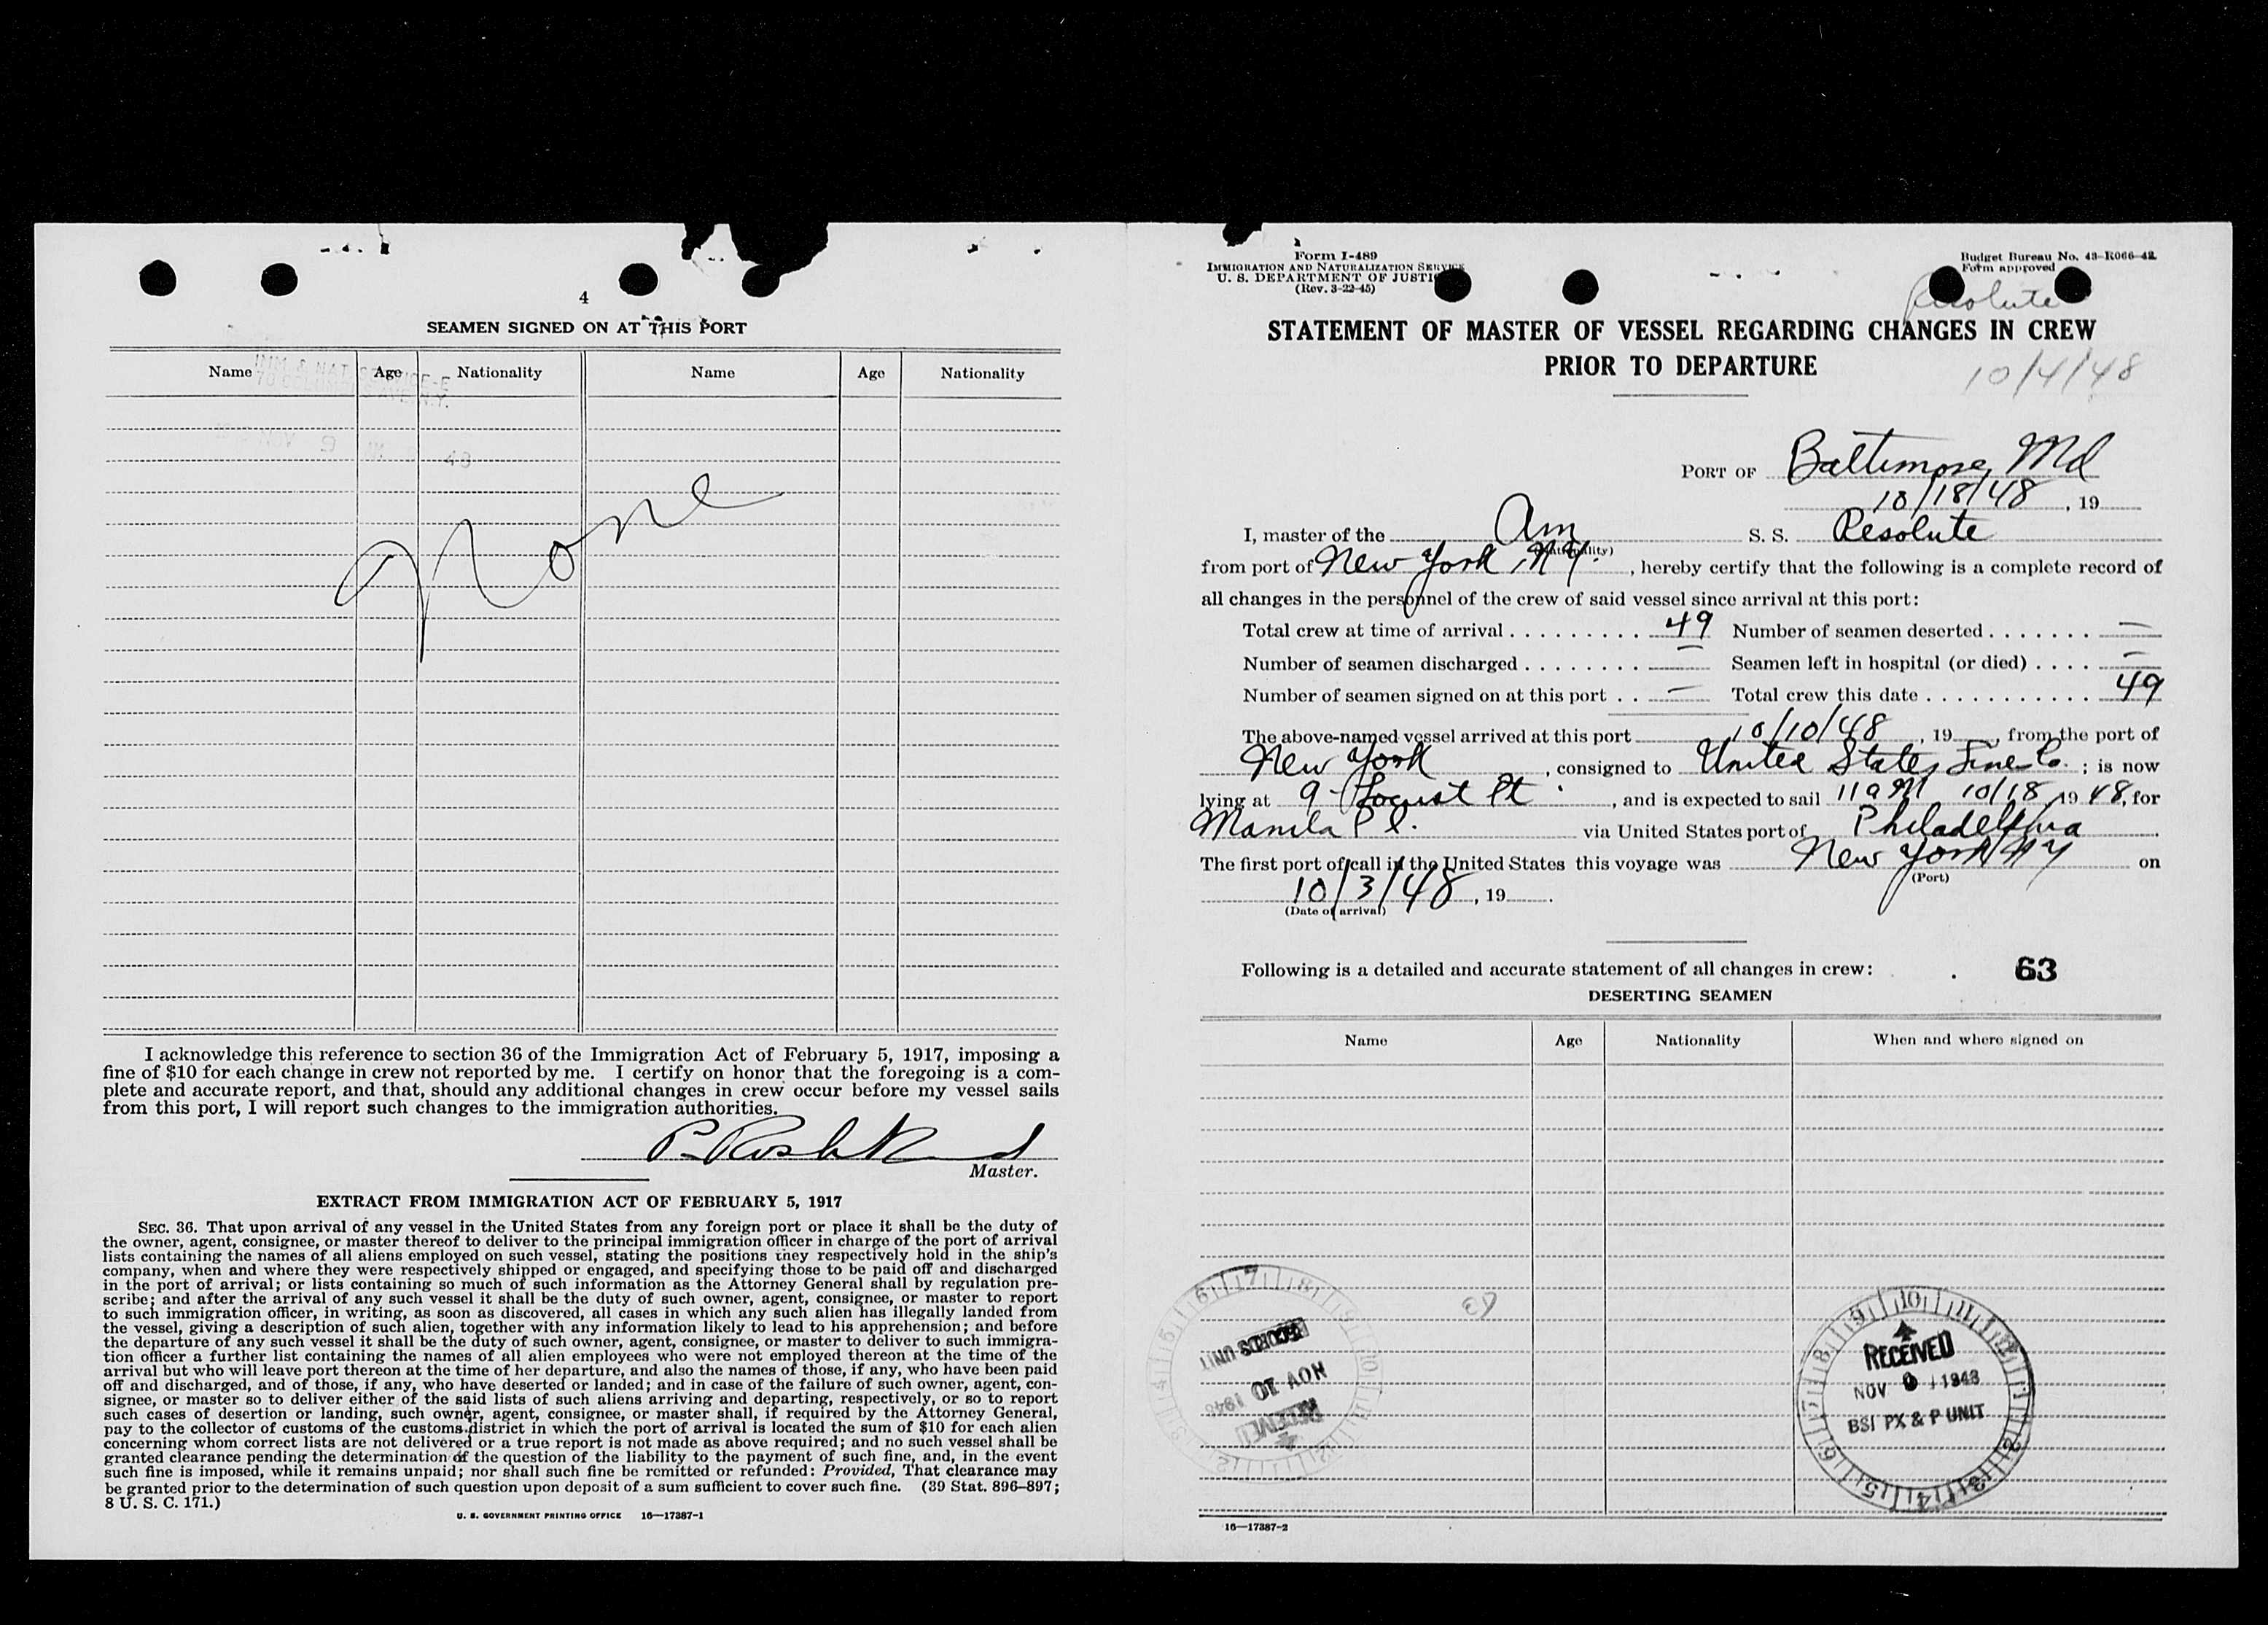 4
SEAMEN SIGNED ON AT THIS PORT
Name Age Nationality Name Age Nationality
None
I acknowledge this reference to section 36 of the Immigration Act of February 5, 1917, imposing a
fine of $10 for each change in crew not reported by me. I certify on honor that the foregoing is a com-
plete and accurate report, and that, should any additional changes in crew occur before my vessel sails
from this port, I will report such changes to the immigration authorities.
Master.
EXTRACT FROM IMMIGRATION ACT OF FEBRUARY 5, 1917
SEC. 36. That upon arrival of any vessel in the United States from any foreign port or place it shall be the duty of
the owner, agent, consignee, or master thereof to deliver to the principal immigration officer in charge of the port of arrival
lists containing the names of all aliens employed on such vessel, stating the positions they respectively hold in the ship's
company, when and where they were respectively shipped or engaged, and specifying those to be paid off and discharged
in the port of arrival; or lists containing so much of such information as the Attorney General shall by regulation pre-
scribe; and after the arrival of any such vessel it shall be the duty of such owner, agent, consignee, or master to report
to such immigration officer, in writing, as soon as discovered, all cases in which any such alien has illegally landed from
the vessel, giving a description of such alien, together with any information likely to lead to his apprehension; and before
the departure of any such vessel it shall be the duty of such owner, agent, consignee, or master to deliver to such immigra-
tion officer a further list containing the names of all alien employees who were not employed thereon at the time of the
arrival but who will leave port thereon at the time of her departure, and also the names of those, if any, who have been paid
off and discharged, and of those, if any, who have deserted or landed; and in case of the failure of such owner, agent, con-
signee, or master so to deliver either of the said lists of such aliens arriving and departing, respectively, or so to report
such cases of desertion or landing, such owner, agent, consignee, or master shall, if required by the Attorney General,
pay to the collector of customs of the customs district in which the port of arrival is located the sum of $10 for each alien
concerning whom correct lists are not delivered or a true report is not made as above required; and no such vessel shall be
granted clearance pending the determination of the question of the liability to the payment of such fine, and, in the event
such fine is imposed, while it remains unpaid; nor shall such fine be remitted or refunded: Provided, That clearance may
be granted prior to the determination of such question upon deposit of a sum sufficient to cover such fine. (39 Stat. 896–897;
8 U. S. C. 171.)
U. S. GOVERNMENT PRINTING OFFICE 16—17387-1
Form I-489
IMMIGRATION AND NATURALIZATION SERVICE
U. S. DEPARTMENT OF JUSTICE
(Rev. 3-22-45)
Budget Bureau No. 43-R066-42.
Form approved
Resolute
STATEMENT OF MASTER OF VESSEL REGARDING CHANGES IN CREW
PRIOR TO DEPARTURE
10/4/48
PORT OF Baltimore, Md
10/18/48, 19
I, master of the Am S. S. Resolute
(Nationality)
from port of New York, N.Y., hereby certify that the following is a complete record of
all changes in the personnel of the crew of said vessel since arrival at this port:
Total crew at time of arrival 49 Number of seamen deserted —
Number of seamen discharged — Seamen left in hospital (or died) —
Number of seamen signed on at this port — Total crew this date 49
The above-named vessel arrived at this port 10/10/48, 19, from the port of
New York, consigned to United States Line Co.; is now
lying at 9 - Locust Pt., and is expected to sail 11 am 10/18, 1948, for
Manila P I. via United States port of Philadelphia.
The first port of call in the United States this voyage was New York N Y on
(Port)
10/3/48, 19.
(Date of arrival)
Following is a detailed and accurate statement of all changes in crew: 63
DESERTING SEAMEN
Name Age Nationality When and where signed on
RECEIVED
NOV 10 1948
RECORDS UNIT
RECEIVED
NOV 9 1948
BSI PX & P UNIT
16—17387-2